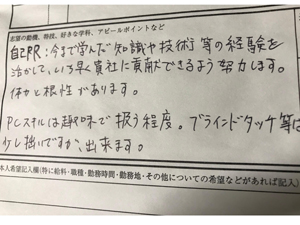 志望の動機、特技、好きな学科、アピールポイントなど
自己PR：今まで学んだ知識や技術等の経験を
活かして、いち早く貴社に貢献できるよう努力します。
体力と根性があります。
PCスキルは趣味で扱う程度。ブラインドタッチ等は
少し拙いですが、出来ます。
本人希望記入欄(特に給料・職種・勤務時間・勤務地・その他についての希望などがあれば記入)